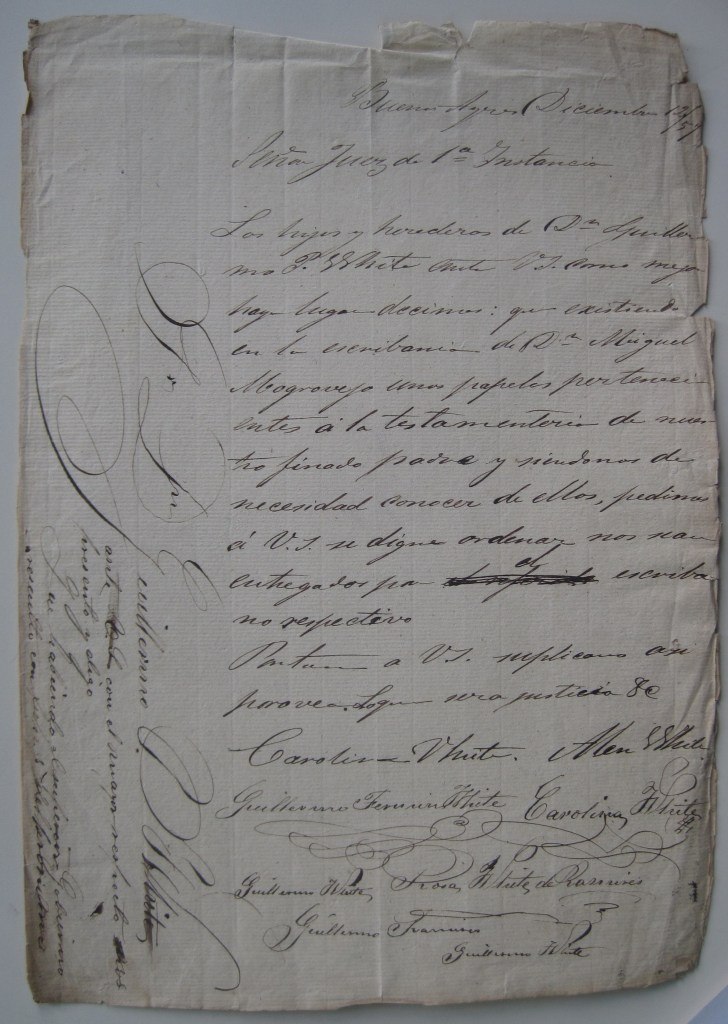 Buenos Ayres Diciembre 12/57
Señor Juez de 1ª Instancia
Los hijos y herederos de Dn Guiller
mo P. White ante V.S. como mejor
haya lugar decimos: que existiendo
en la escribania de Dn Miguel
Mogrovejo unos papeles perteneci
entes á la testamentaria de nues
tro finado padre y siendonos de
necesidad conocer de ellos, pedimos
á V.S. se digne ordenar nos sean
entregados por el escriba
no respectivo
Por tanto a V.S. suplicamos asi
provea. Lo que sera justicia &c
Carolina White. Alen White
Guillermo Fermin White Carolina White
Guillermo White Rosa White de Ramires
Guillermo Framires
Guillermo White
Guillermo P. White
ante con el mayor respeto
presento y digo